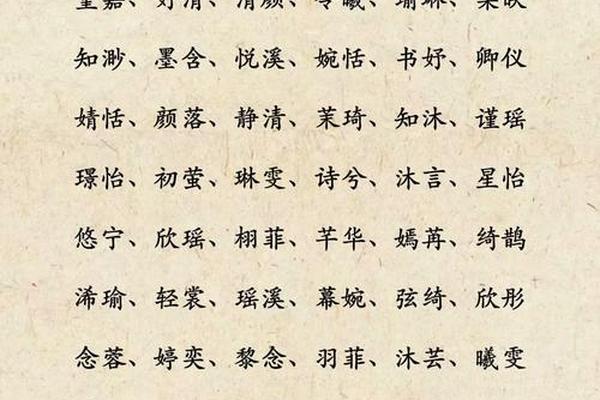 知渺、墨含、悦溪、婉恬、书妤、卿仪
婧恬、颜落、静清、茉琦、知沐、谨瑶
璟怡、初萤、琳雯、诗兮、沐言、星怡
悠宁、欣瑶、栩菲、芊华、嫣苒、绮鹊
浠瑜、轻裳、瑶溪、幕婉、弦绮、欣彤
念蓉、婷奕、黎念、羽菲、沐芸、曦雯